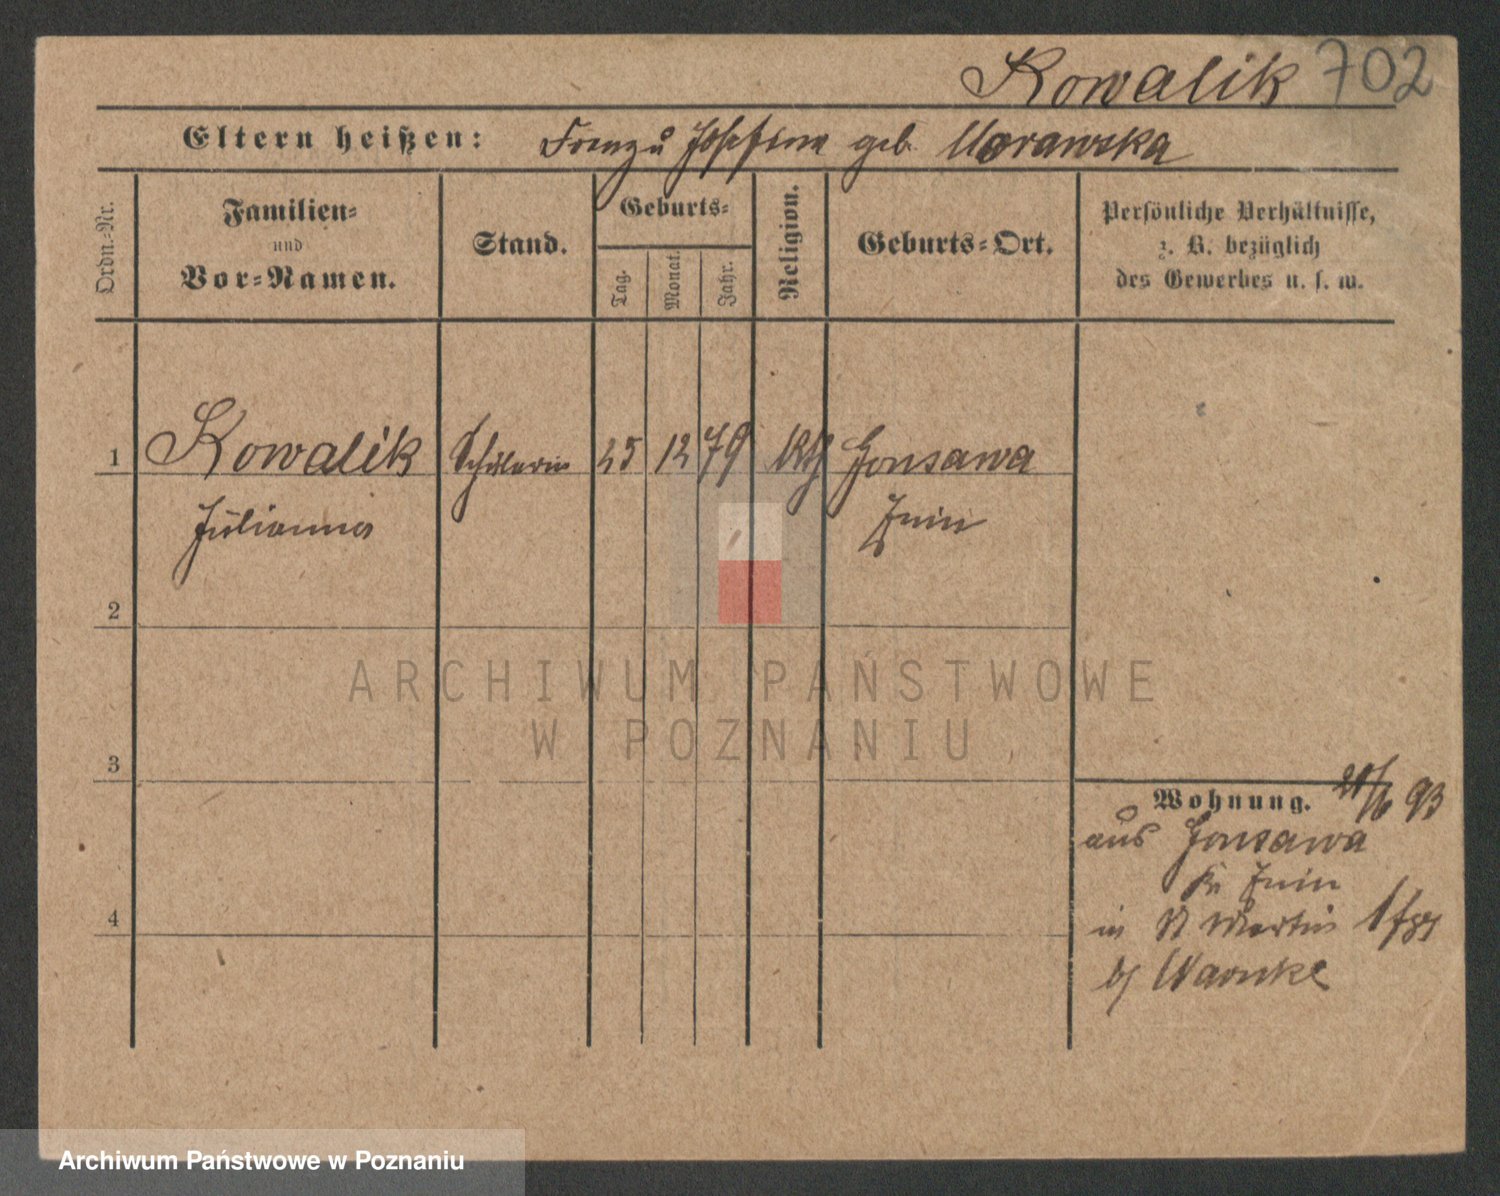 Kowalik 702
Eltern heißen: Franz u Josefina geb. Morawska
Ordn.-Nr.
Familien-
und
Vor-Namen.
Stand.
Geburts-
Tag.
Monat.
Jahr.
Religion.
Geburts-Ort.
Persönliche Verhältnisse,
z. B. bezüglich
des Gewerbes u. s. w.
1 Kowalik Schülerin 25 12 79 kth Gonsawa
Julianna Znin
2
3
4
Wohnung. 93
aus Gonsawa
Kr Znin
in St Martin
bj Warnke
ARCHIWUM PAŃSTWOWE
W POZNANIU
Archiwum Państwowe w Poznaniu